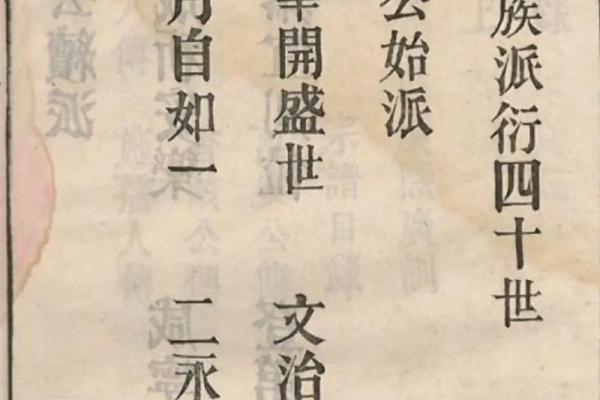 族派衍四十世
公始派
開盛世 文治
月自如一 二永
公續派